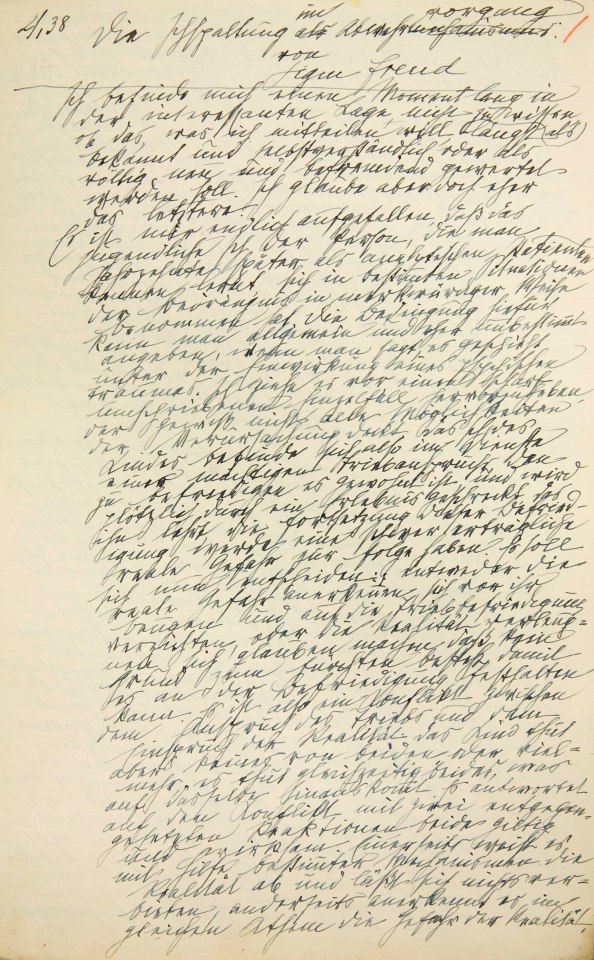 4/1 38
im vorgang
Die Ichspaltung als Abwehrmechanismus.
von
Sigm Freud
Ich befinde mich einen Moment lang in
der interessanten Lage nicht zu wissen
ob das, was ich mitteilen will längst (als)
bekannt und selbstverständlich oder als
völlig neu und befremdend gewertet
werden soll. Ich glaube aber doch eher
das letztere.
Es ist mir endlich aufgefallen, daß das
jugendliche Ich der Person, die man
Jahrzehnte später als analytischen Patienten
kennen lernt, sich in bestimmten Situationen
der Bedrängnis in merkwürdiger Weise
benommen hat. Die Bedingung hiefür
kann man allgemein und eher unbestimmt
angeben, wenn man sagt, es geschieht
unter der Einwirkung eines psychischen
Traumas. Ich ziehe es vor einen scharf
umschriebenen Einzelfall hervorzuheben
der gewiß nicht alle Möglichkeiten
der Verursachung deckt. Das Ich des
Kindes befinde sich also im Dienste
eines mächtigen Triebanspruchs, den
zu befriedigen es gewohnt ist, und wird
plötzlich durch ein Erlebnis geschreckt, das
ihn lehrt, die Fortsetzung dieser Befried-
igung werde eine schwer erträgliche
reale Gefahr zur Folge haben. Es soll
sich nun entscheiden: entweder die
reale Gefahr anerkennen, sich vor ihr
beugen und auf die Triebbefriedigung
verzichten, oder die Realität verleug-
nen, sich glauben machen, daß kein
Grund zum Fürchten besteht, damit
es an der Befriedigung festhalten
kann. Es ist also ein Konflikt zwischen
dem Anspruch des Triebs und dem
Einspruch der Realität. Das Kind thut
aber keines von beiden oder viel-
mehr, es thut gleichzeitig beides, was
auf dasselbe hinauskommt. Es antwortet
auf den Konflikt mit zwei entgegen-
gesetzten Reaktionen, beide giltig
und wirksam. Einerseits weist es
mit Hilfe bestimmter Mechanismen die
Realität ab und läßt sich nichts ver-
bieten, anderseits anerkennt es im
gleichen Athem die Gefahr der Realität,